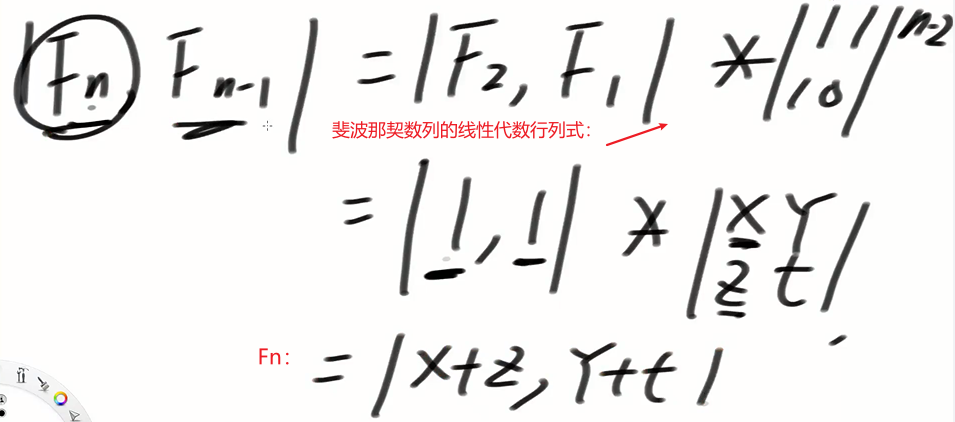 |Fn Fn-1| = |F2, F1| * |1 1|n-2
|1 0|
斐波那契数列的线性代数行列式：
= |1, 1| * |X Y|
|Z t|
Fn： = |X+Z, Y+t|